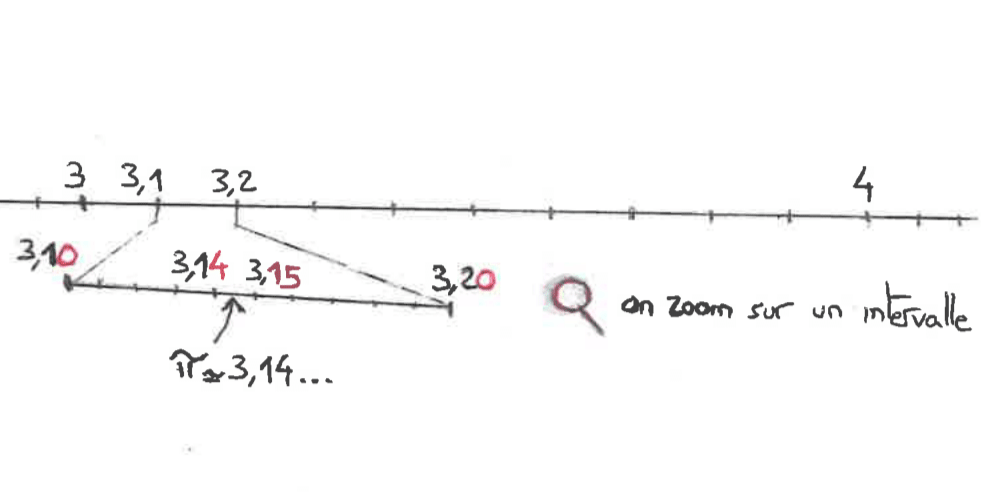 3 3,1 3,2 4
3,10 3,14 3,15 3,20
on zoom sur un intervalle
π≃3,14...